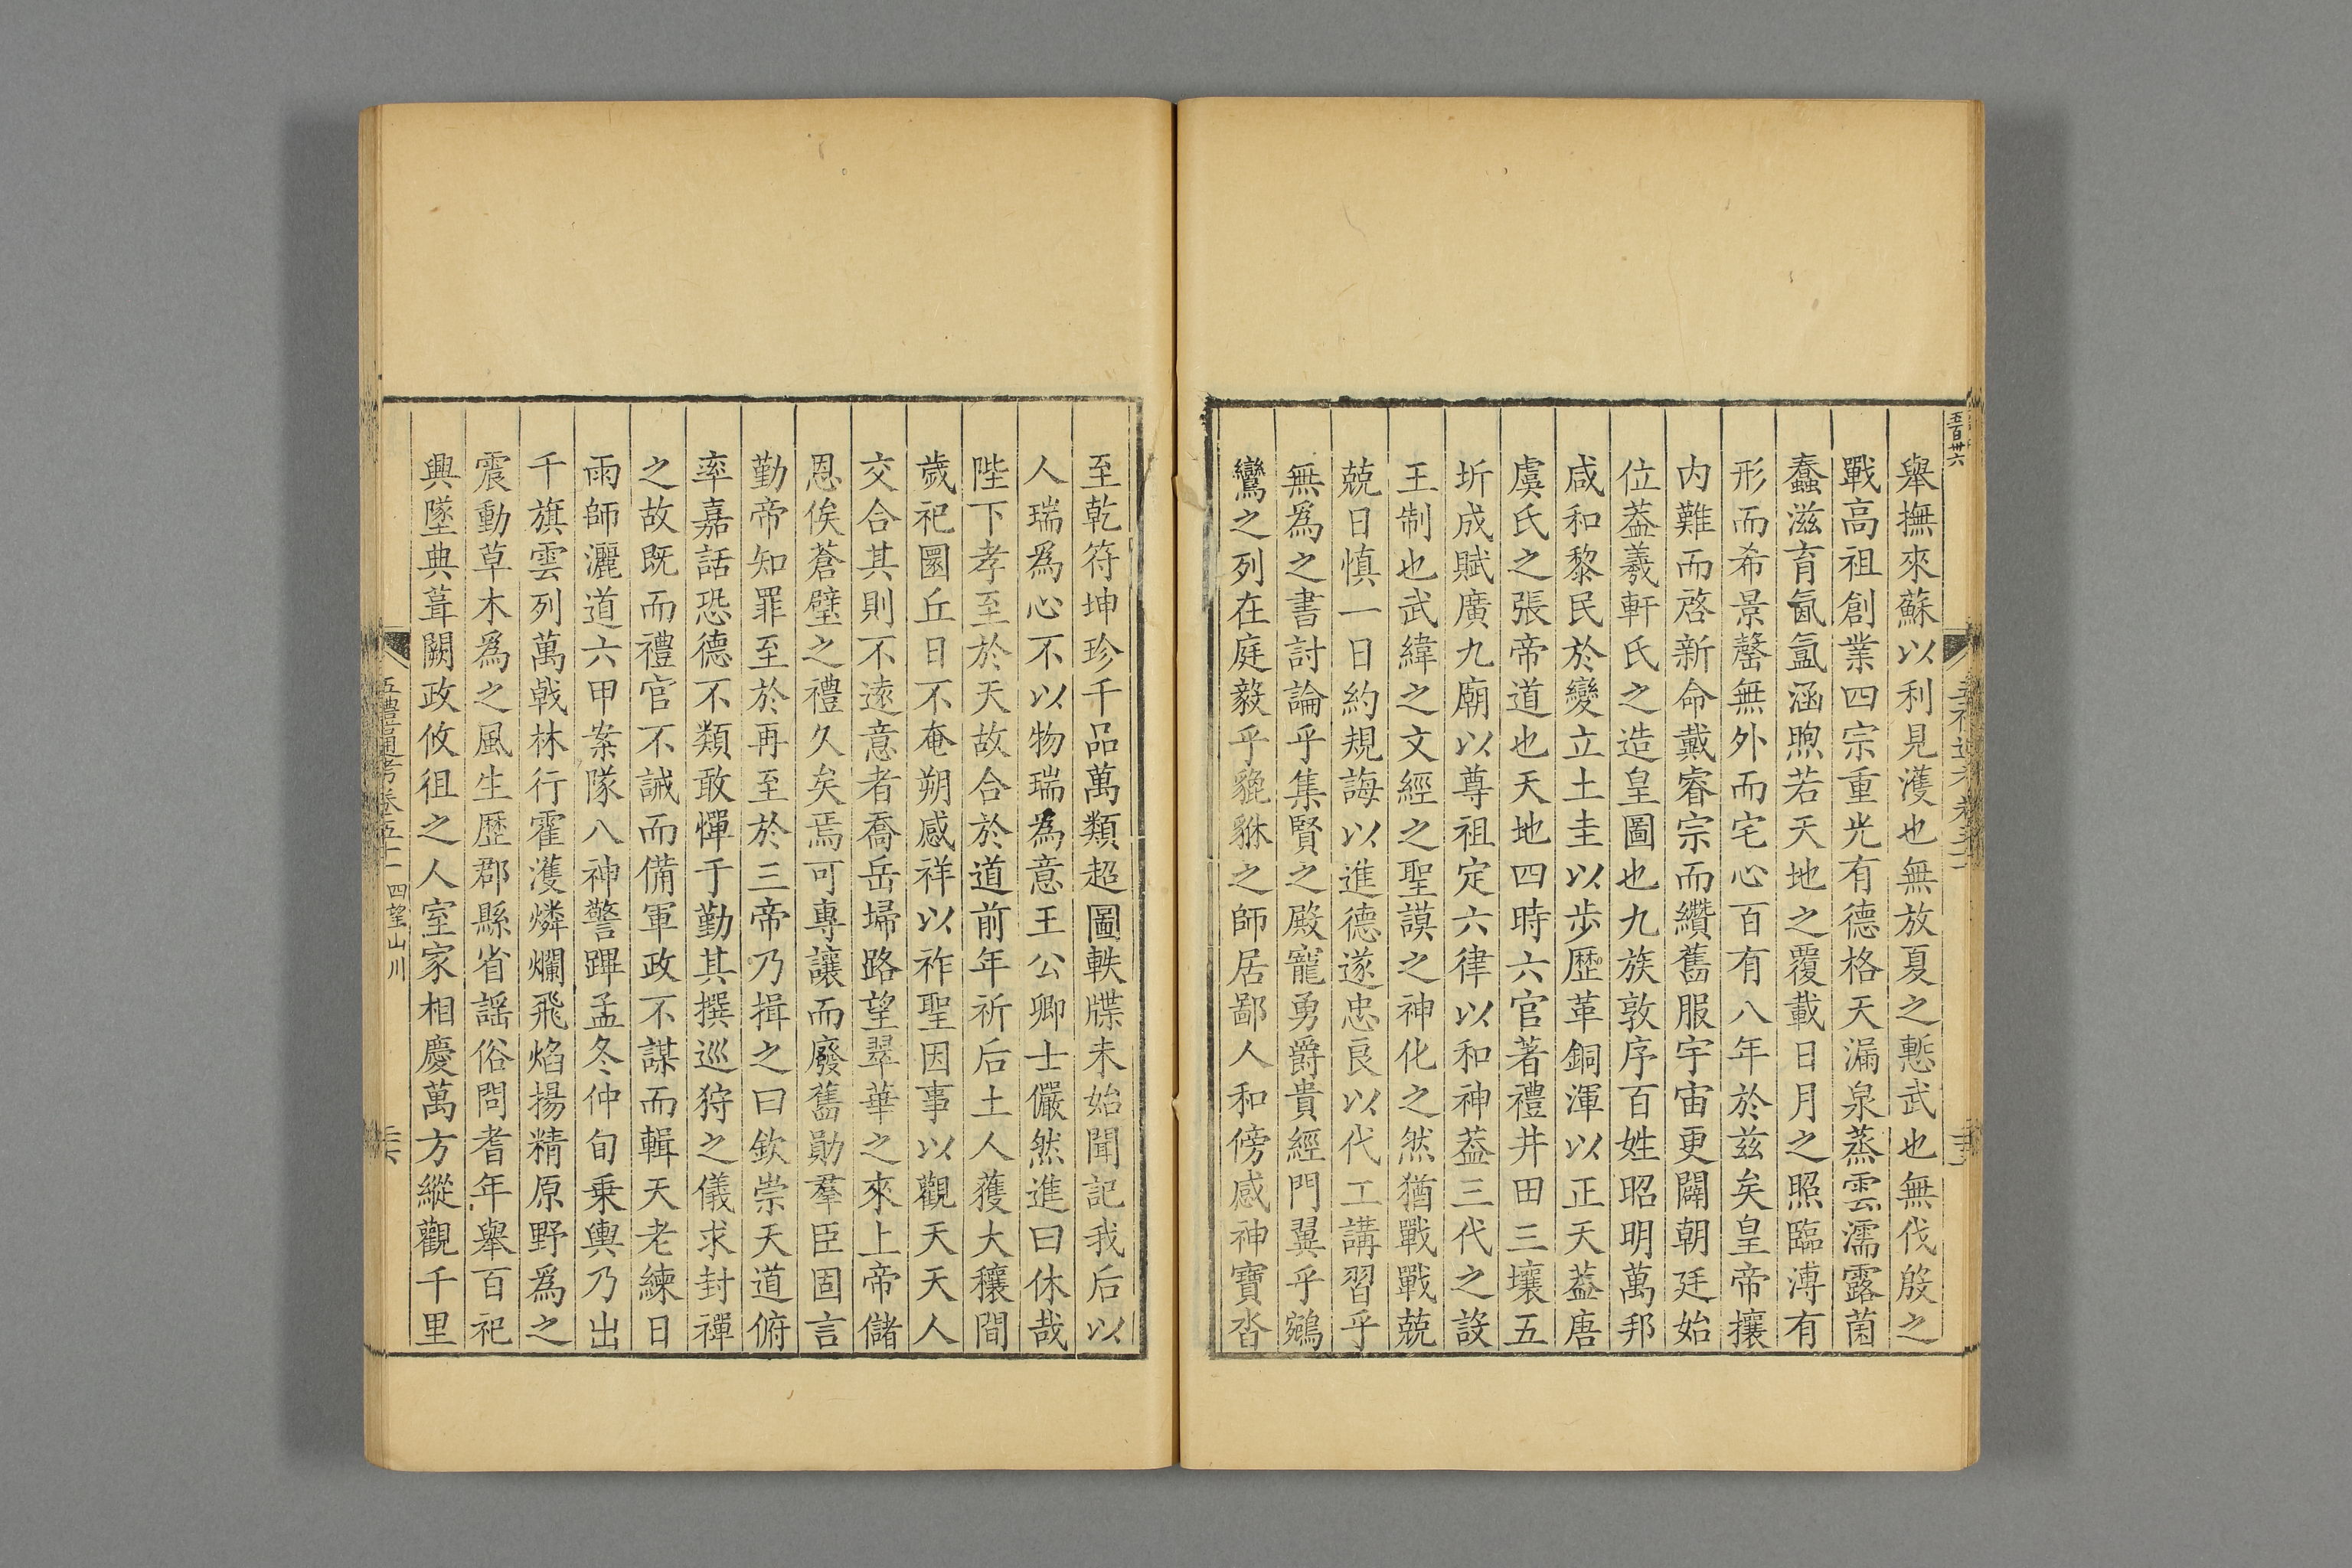 五百卅六
舉撫來蘇以利見濩也無放夏之慙武也無伐殷之
戰高祖創業四宗重光有德格天漏泉蒸雲濡露菌
蠢滋育氤氳涵煦若天地之覆載日月之照臨溥有
形而希景罄無外而宅心百有八年於兹矣皇帝攘
内難而啓新命戴睿宗而纘舊服宇宙更闢朝廷始
位葢羲軒氏之造皇圖也九族敦序百姓昭明萬邦
咸和黎民於變立土圭以步歷革銅渾以正天葢唐
虞氏之張帝道也天地四時六官著禮井田三壤五
圻成賦廣九廟以尊祖定六律以和神葢三代之設
王制也武緯之文經之聖謨之神化之然猶戰戰兢
兢日慎一日約規誨以進德遂忠良以代工講習乎
無為之書討論乎集賢之殿寵勇爵貴經門翼乎鵷
鸞之列在庭毅乎貔貅之師居鄙人和傍感神寶沓
至乾符坤珍千品萬類超圖軼牒未始聞記我后以
人瑞為心不以物瑞為意王公卿士儼然進曰休哉
陛下孝至於天故合於道前年祈后土人獲大穰間
歲祀圜丘日不奄朔感祥以祚聖因事以觀天天人
交合其則不遠意者喬岳埽路望翠華之來上帝儲
恩俟蒼璧之禮久矣焉可專讓而廢舊勛羣臣固言
勤帝知罪至於再至於三帝乃揖之曰欽崇天道俯
率嘉話恐德不類敢憚于勤其撰巡狩之儀求封禪
之故既而禮官不誡而備軍政不謀而輯天老練日
雨師灑道六甲案隊八神警蹕孟冬仲旬乗輿乃出
千旗雲列萬戟林行霍濩燐爛飛焰揚精原野為之
震動草木為之風生歷郡縣省謡俗問耆年舉百祀
興墜典葺闕政攸徂之人室家相慶萬方縱觀千里
五禮通考卷五十一 四望山川